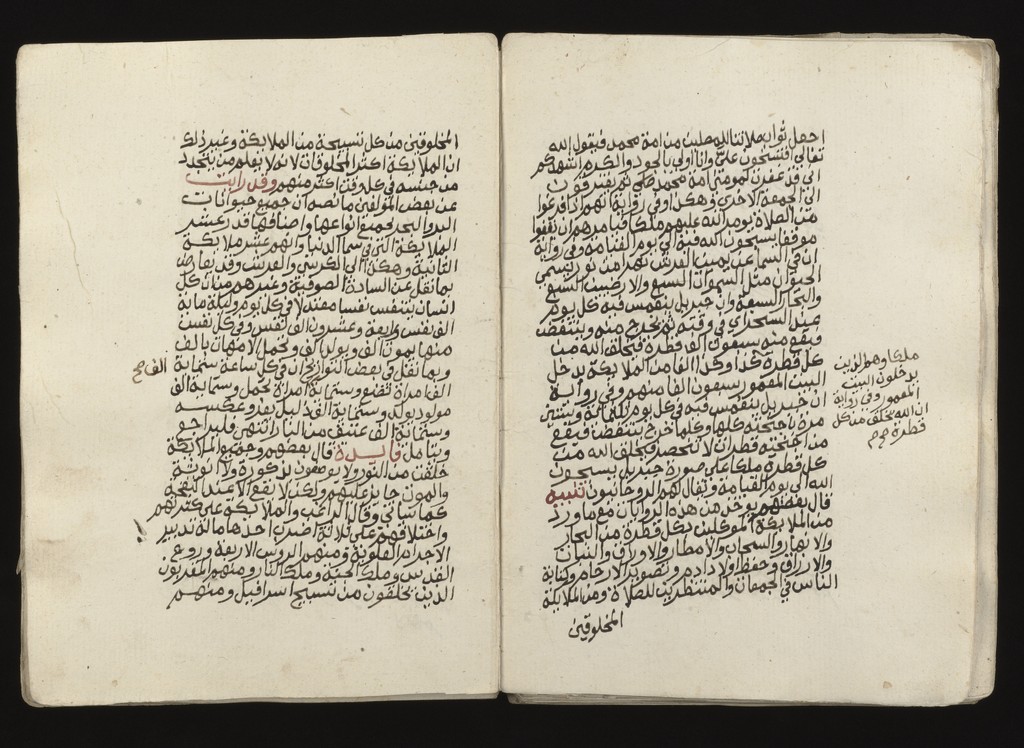 اجعل ثوابه لامتنا للمصلين من امة محمد فيقول الله
تعالى افتسخون علي وانا اولى بالجود والكرم اشهدكم
اني قد غفرت لمومني امة محمد صلى ثم يفترقون
الى الجمعة الاخرى وهكذا وفي رواية انهم اذا فرغوا
من الصلاة يومر الله عليهم ملكا فيامرهم ان يقفوا
موقفا يسبحون الله فيه الى يوم القيامة وفي رواية
ان في السما عن يمين العرش نهرا من نور يسمى
الحيوان مثل السموات السبع والارضين السبع
والبحار السبعة وان جبريل ينغمس فيه كل يوم
عند السحر اي وقته ثم يخرج منه وينتفض
فيقع منه سبعون الف قطرة فيخلق الله من
كل قطرة كذا وكذا الفا من الملايكة يدخل
البيت المعمور سبعون الفا منهم وفي رواية
ان جبريل ينغمس فيه في كل يوم ثلثماية وستين
مرة باجنحته كلها وكلما خرج ينتفض فيقع
من اجنحته قطرات لا تنحصر فيخلق الله من
كل قطرة ملكا على صورة جبريل يسبحون
الله الى يوم القيامة ويقال لهم الروحانيون تنبيه
قال بعضهم يوخذ من هذه الروايات مع ما ورد
من الملايكة الموكلين بكل قطرة من البحار
والانهار والسحاب والامطار والاوراق والنبات
والارزاق وحفظ اولاد ادم وتصوير الارحام وكتابة
الناس في الجمعات والمنتظرين للصلاة ومن الملايكة
المخلوقين
ملكا وهم الذين
يدخلون البيت
المعمور وفي رواية
ان الله يخلق من كل
قطرة
المخلوقين من كل تسبيحة من الملايكة وغير ذلك
ان الملايكة اكثر المخلوقات لانه لا يعلم من يتجدد
من جنسه في كل وقت اكثر منهم وقد رايت
عن بعض المولفين ما نصه ان جميع حيوانات
البر والبحر بجميع انواعها واصنافها قدر عشر
الملايكة التي في سما الدنيا وانهم عشر ملايكة
الثانية وهكذا الى الكرسي والعرش وقد يعارض
بما نقل عن السادة الصوفية وغيرهم من ان كل
انسان يتنفس نفسا معتدلا في كل يوم وليلة ماية
الف نفس واربعة وعشرون الف نفس وفي كل نفس
منها يموت الف ويولد الف وتحمل الامهات بالف
وبما نقل في بعض التواريخ ان في كل ساعة ستماية
الف صح
الف امراة تضع وستماية امراة تحمل وستماية الف
مولود يولد وستماية الف ذليل يعز وعكسه
وستماية الف عتيق من النار انتهى فليراجع
ويتامل فايدة قال بعضهم وجميع الملايكة
خلقت من النور ولا يوصفون بذكورة ولا انوثة
والموت جايز عليهم ولكن لا يقع الا عند النفخة
كما سياتي وقال الراغب والملايكة على كثرتهم
واختلافهم على ثلاثة اضرب احدها ما له تدبير
الاجرام العلوية ومنهم الروس الاربعة وروح
القدس وملك الجنة وملك النار ومنهم المقربون
الذين يخلقون من تسبيح اسرافيل ومنهم